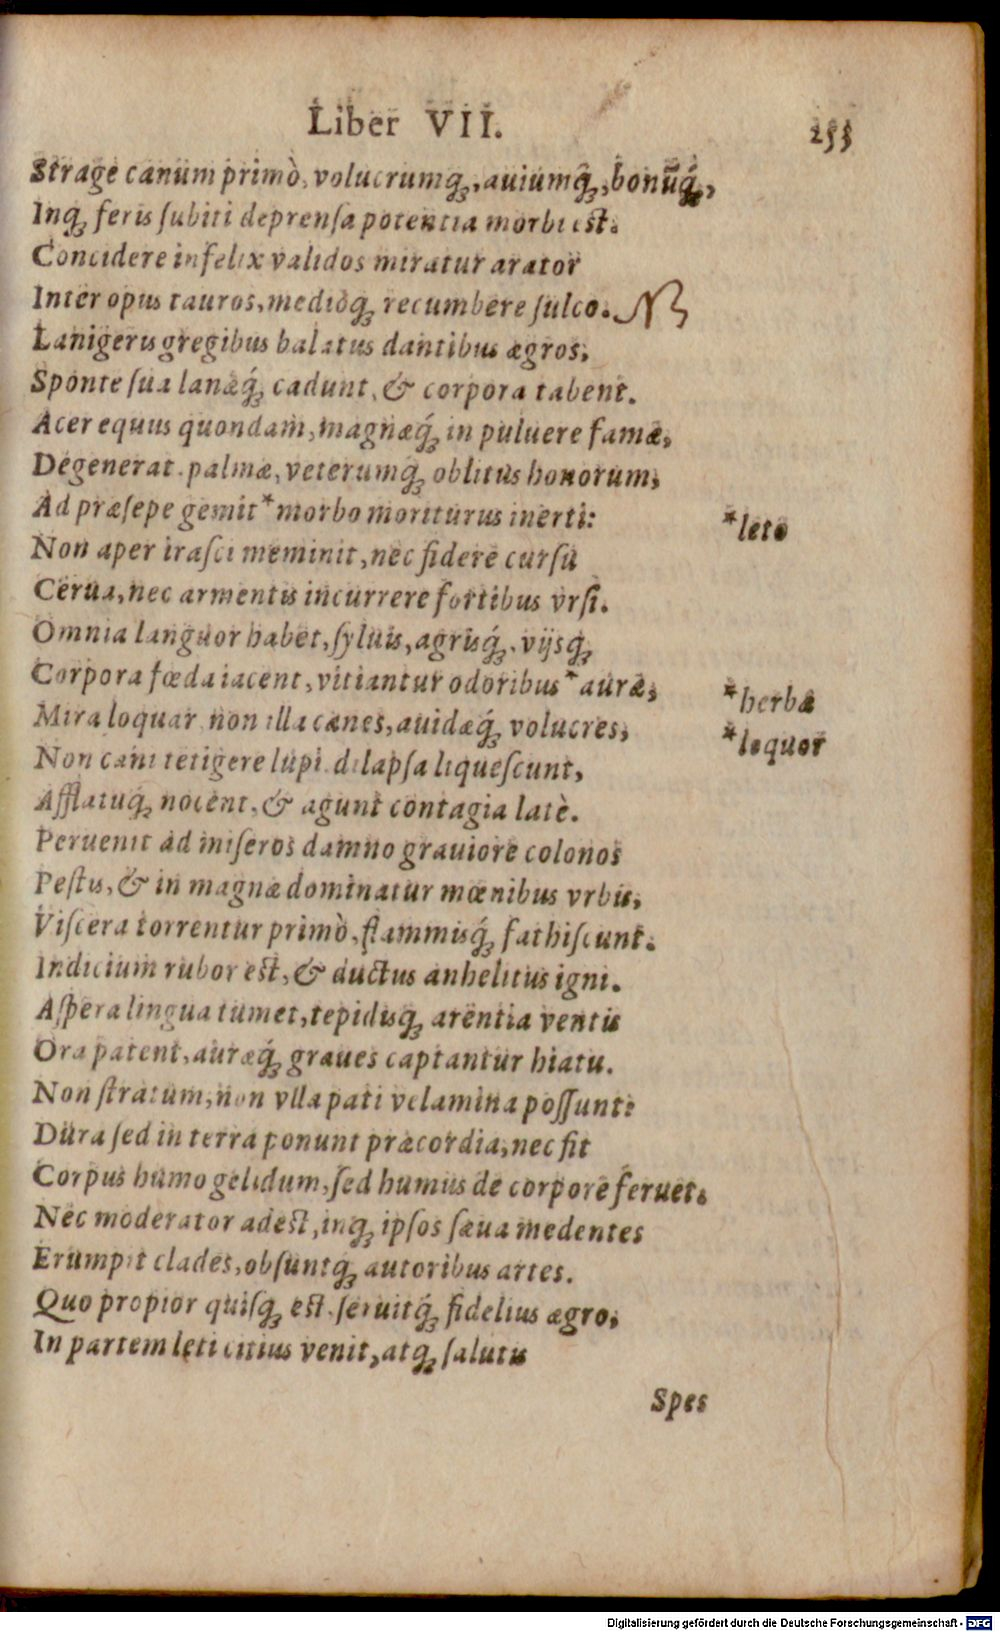 Liber VII. 253
Strage canum primò, volucrumq́;, auiumq́;, bonũq́;,
Inq; feris ſubiti deprenſa potentia morbi est.
Concidere infelix validos miratur arator
Inter opus tauros, medioq́; recumbere ſulco. NB
Lanigeris gregibus balatus dantibus ægros,
Sponte ſua lanæq́; cadunt, & corpora tabent.
Acer equus quondam, magnæq́; in puluere famæ,
Degenerat. palmæ, veterumq́; oblitus honorum,
Ad præſepe gemit * morbo moriturus inerti: *leto
Non aper iraſci meminit, nec fidere curſu
Cerua, nec armentis incurrere fortibus vrſi.
Omnia languor habet, ſyluis, agrisq́;, vijsq́;
Corpora fœda iacent, vitiantur odoribus * auræ, *herbæ
Mira loquar, non illa canes, auidæq́; volucres, *loquor
Non cani tetigere lupi. dilapſa liqueſcunt,
Afflatuq́; nocent, & agunt contagia latè.
Peruenit ad miſeros damno grauiore colonos
Peſtis, & in magnæ dominatur mœnibus vrbis,
Viſcera torrentur primò, flammisq́; fathiſcunt.
Indicium rubor est, & ductus anhelitus igni.
Aſpera lingua tumet, tepidisq́; arentia ventis
Ora patent, auræq́; graues captantur hiatu.
Non ſtratum, non vlla pati velamina poſſunt:
Dura ſed in terra ponunt præcordia, nec fit
Corpus humo gelidum, ſed humus de corpore feruet.
Nec moderator adest, inq́; ipſos ſæua medentes
Erumpit clades, obſuntq́; autoribus artes.
Quo propior quiſq; est. ſeruitq́; fidelius ægro,
In partem leti citius venit, atq; ſalutis
Spes
Digitalisierung gefördert durch die Deutsche Forschungsgemeinschaft - DFG